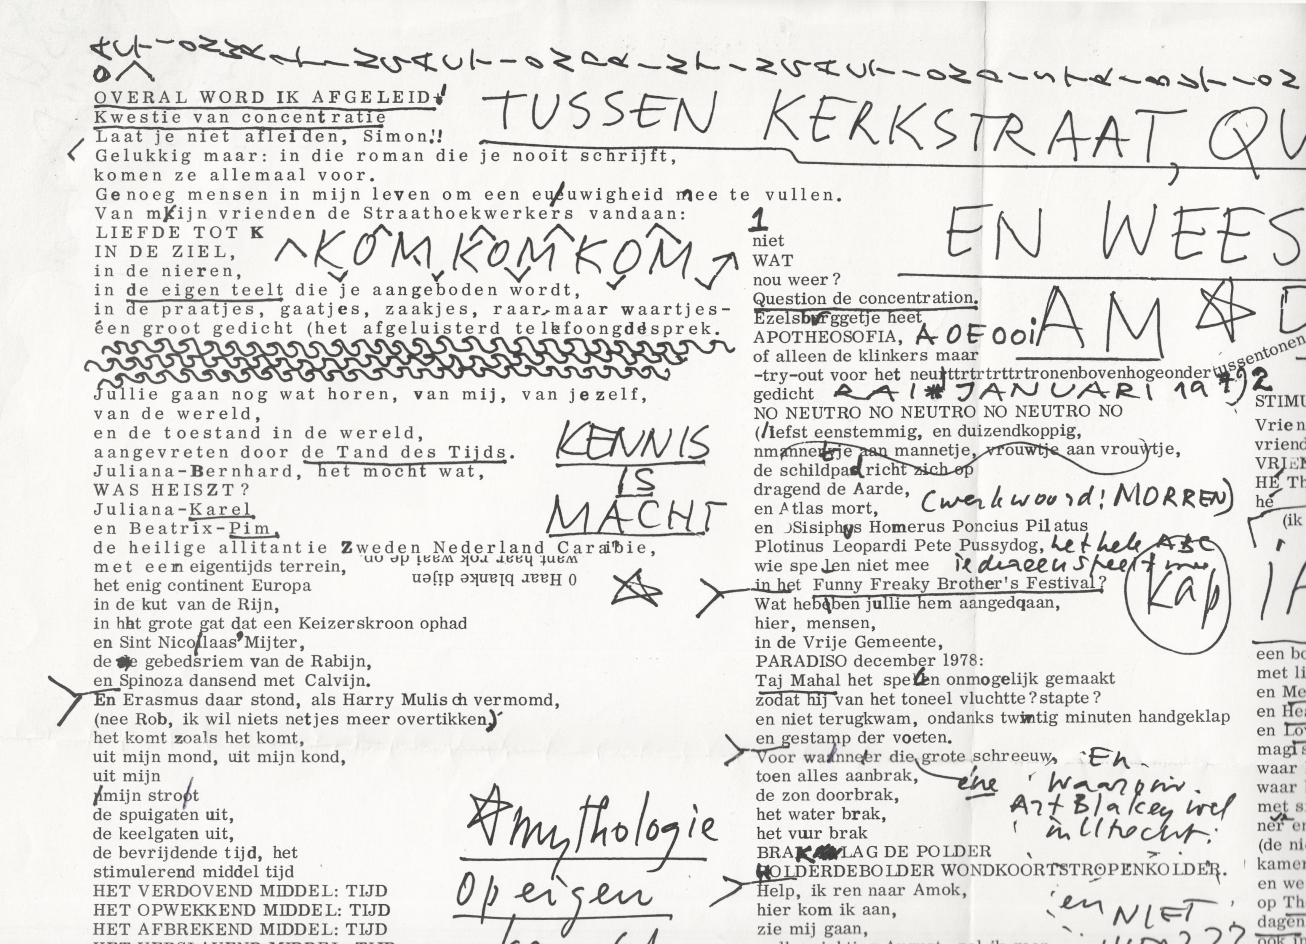 OVERAL WORD IK AFGELEID!
Kwestie van concentratie
Laat je niet afleiden, Simon!!
Gelukkig maar: in die roman die je nooit schrijft,
komen ze allemaal voor.
Genoeg mensen in mijn leven om een eeuwigheid mee te vullen.
Van mijn vrienden de Straathoekwerkers vandaan:
LIEFDE TOT K
IN DE ZIEL,
in de nieren,
in de eigen teelt die je aangeboden wordt,
in de praatjes, gaatjes, zaakjes, raar maar waartjes-
één groot gedicht (het afgeluisterd telefoongesprek.
KOM KOM KOM
Jullie gaan nog wat horen, van mij, van jezelf,
van de wereld,
en de toestand in de wereld,
aangevreten door de Tand des Tijds.
Juliana-Bernhard, het mocht wat,
WAS HEISZT?
Juliana-Karel
en Beatrix-Pim,
de heilige allitantie Zweden Nederland Caraïbie,
met een eigentijds terrein,
het enig continent Europa
in de kut van de Rijn,
in het grote gat dat een Keizerskroon ophad
en Sint Nicolaas' Mijter,
de gebedsriem van de Rabijn,
en Spinoza dansend met Calvijn.
En Erasmus daar stond, als Harry Mulisch vermomd,
(nee Rob, ik wil niets netjes meer overtikken)
het komt zoals het komt,
uit mijn mond, uit mijn kond,
uit mijn
mijn stroot
de spuigaten uit,
de keelgaten uit,
de bevrijdende tijd, het
stimulerend middel tijd
HET VERDOVEND MIDDEL: TIJD
HET OPWEKKEND MIDDEL: TIJD
HET AFBREKEND MIDDEL: TIJD
KENNIS
IS
MACHT
O Haar blanke dijen
want haar rok waait op
mythologie
op eigen
TUSSEN KERKSTRAAT, QU
EN WEES
AM
1
niet
WAT
nou weer?
Question de concentration.
Ezelsbruggetje heet
APOTHEOSOFIA, AOEOOIA
of alleen de klinkers maar
-try-out voor het neuttrtrtrttrtronenbovenhogeondertussentonen
gedicht RAI JANUARI 1979
NO NEUTRO NO NEUTRO NO NEUTRO NO
(liefst eenstemmig, en duizendkoppig,
mannetje aan mannetje, vrouwtje aan vrouwtje,
de schildpad richt zich op
dragend de Aarde,
en Atlas mort, (werkwoord: MORREN)
en Sisiphys Homerus Poncius Pilatus
Plotinus Leopardi Pete Pussydog, het hele ABC
wie spelen niet mee iedereen speelt mee
in het Funny Freaky Brother's Festival?
Kap
Wat hebben jullie hem aangedqaan,
hier, mensen,
in de Vrije Gemeente,
PARADISO december 1978:
Taj Mahal het spelen onmogelijk gemaakt
zodat hij van het toneel vluchtte?stapte?
en niet terugkwam, ondanks twintig minuten handgeklap
en gestamp der voeten.
Voor wanneer die ene grote schreeuw,
toen alles aanbrak,
de zon doorbrak,
het water brak,
het vuur brak
BRAK LAG DE POLDER
HOLDERDEBOLDER WONDKOORTSTROPENKOLDER.
Help, ik ren naar Amok,
hier kom ik aan,
zie mij gaan,
En
waarom
Art Blakey wel
in Utrecht
en NIET
2
STIMU
Vrien
vriend
VRIEN
HÉ Th
hé
(ik
een bo
met li
en Me
en He
en Lov
magis
waar
waar
met s
ner e
(de ni
kamer
en we
op Th
dagen